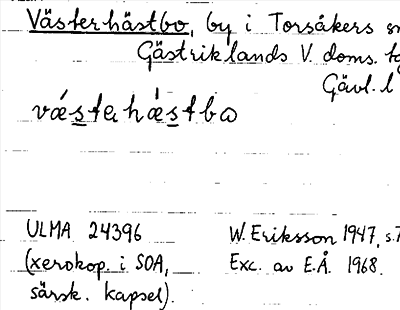 Västerhästbo, by i Torsåkers sn
Gästriklands V. doms. tg
Gävl. l
vǽstahæ̀stbω
ULMA 24396
(xerokop. i SOA,
särsk. kapsel).
W. Eriksson 1947, s.7
Exc. av E.Å. 1968.